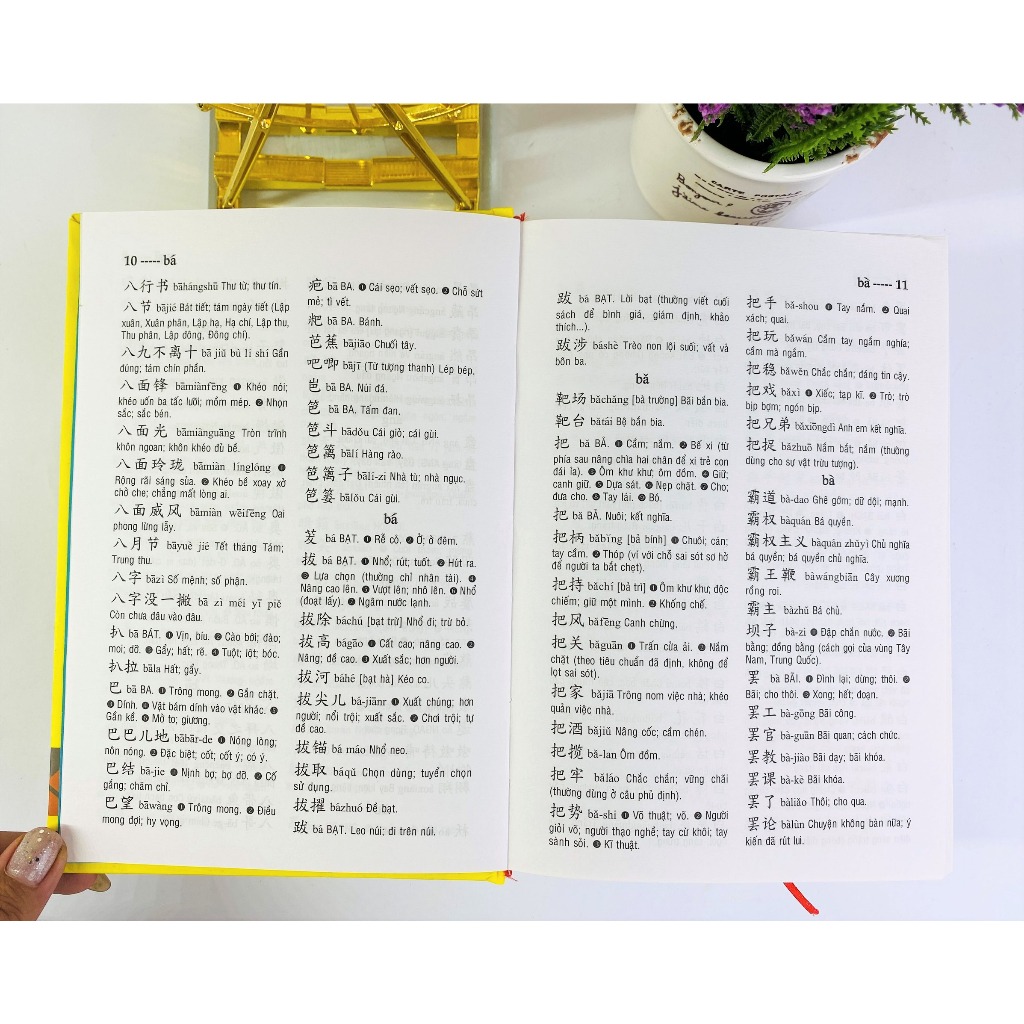 CARTE POSTALE
10 ----- bá
八行书 bāhángshū Thư từ; thư tín.
八节 bājié Bát tiết; tám ngày tiết (Lập
xuân, Xuân phân, Lập hạ, Hạ chí, Lập thu,
Thu phân, Lập đông, Đông chí).
八九不离十 bā jiǔ bù lí shí Gần
đúng; tám chín phần.
八面锋 bāmiànfēng ❶ Khéo nói;
khéo uốn ba tấc lưỡi; mồm mép. ❷ Nhọn
sắc; sắc bén.
八面光 bāmiànguāng Tròn trĩnh
khôn ngoan; khôn khéo đủ bề.
八面玲珑 bāmiàn línglóng ❶
Rộng rãi sáng sủa. ❷ Khéo bề xoay xở
chỗ che; chẳng mất lòng ai.
八面威风 bāmiàn wēifēng Oai
phong lừng lẫy.
八月节 bāyuè jié Tết tháng Tám;
Trung thu.
八字 bāzì Số mệnh; số phận.
八字没一撇 bā zì méi yī piě
Còn chưa đâu vào đâu.
扒 bā BÁT. ❶ Vịn, bíu. ❷ Cào bới; đào;
moi; dỡ. ❸ Gẩy; hất; rẽ. ❹ Tuột; lột; bóc.
扒拉 bāla Hất; gẩy.
巴 bā BA. ❶ Trông mong. ❷ Gắn chặt.
❸ Dính. ❹ Vật bám dính vào vật khác. ❺
Gần kề. ❻ Mở to; giương.
巴巴儿地 bābār-de ❶ Nóng lòng;
nôn nóng. ❷ Đặc biệt; cốt; cốt ý; có ý.
巴结 bā-jie ❶ Nịnh bợ; bợ đỡ. ❷ Cố
gắng; chăm chỉ.
巴望 bāwàng ❶ Trông mong. ❷ Điều
mong đợi; hy vọng.
疤 bā BA. ❶ Cái sẹo; vết sẹo. ❷ Chỗ sứt
mẻ; tì vết.
粑 bā BA. Bánh.
芭蕉 bājiāo Chuối tây.
吧唧 bājī (Từ tượng thanh) Lép bép.
岜 bā BA. Núi đá.
笆 bā BA. Tấm đan.
笆斗 bādǒu Cái giỏ; cái gùi.
笆篱 bālí Hàng rào.
笆篱子 bālí-zi Nhà tù; nhà ngục.
笆篓 bālǒu Cái gùi.
bá
茇 bá BẠT. ❶ Rễ cỏ. ❷ Ở; ở đêm.
拔 bá BẠT. ❶ Nhổ; rút; tuốt. ❷ Hút ra.
❸ Lựa chọn (thường chỉ nhân tài). ❹
Nâng cao lên. ❺ Vượt lên; nhô lên. ❻ Nhổ
(đoạt lấy). ❼ Ngâm nước lạnh.
拔除 báchú [bạt trừ] Nhổ đi; trừ bỏ.
拔高 bágāo ❶ Cất cao; nâng cao. ❷
Nâng; đề cao. ❸ Xuất sắc; hơn người.
拔河 báhé [bạt hà] Kéo co.
拔尖儿 bá-jiānr ❶ Xuất chúng; hơn
người; nổi trội; xuất sắc. ❷ Chơi trội; tự
đề cao.
拔锚 bá máo Nhổ neo.
拔取 báqǔ Chọn dùng; tuyển chọn
sử dụng.
拔擢 bázhuó Đề bạt.
跋 bá BẠT. Leo núi; đi trên núi.
bà ----- 11
跋 bá BẠT. Lời bạt (thường viết cuối
sách để bình giá, giám định, khảo
thích...).
跋涉 báshè Trèo non lội suối; vất và
bôn ba.
bǎ
靶场 bǎchǎng [bà trường] Bãi bắn bia.
靶台 bǎtái Bệ bắn bia.
把 bǎ BẢ. ❶ Cầm; nắm. ❷ Bế xi (từ
phía sau nâng chìa hai chân để xi trẻ con
đái ỉa). ❸ Ôm khư khư; ôm đồm. ❹ Giữ;
canh giữ. ❺ Dựa sát. ❻ Nẹp chặt. ❼ Cho;
đưa cho. ❽ Tay lái. ❾ Bó.
把 bǎ BẢ. Nuôi; kết nghĩa.
把柄 bǎbǐng [bả bính] ❶ Chuôi; cán;
tay cầm. ❷ Thóp (ví với chỗ sai sót sơ hở
để người ta bắt chẹt).
把持 bǎchí [bả trì] ❶ Ôm khư khư; độc
chiếm; giữ một mình. ❷ Khống chế.
把风 bǎfēng Canh chừng.
把关 bǎguān ❶ Trấn cửa ải. ❷ Nắm
chặt (theo tiêu chuẩn đã định, không để
lọt sai sót).
把家 bǎjiā Trông nom việc nhà; khéo
quản việc nhà.
把酒 bǎjiǔ Nâng cốc; cầm chén.
把揽 bǎ-lan Ôm đồm.
把牢 bǎláo Chắc chắn; vững chãi
(thường dùng ở câu phủ định).
把势 bǎ-shi ❶ Võ thuật; võ. ❷ Người
giỏi võ; người thạo nghề; tay cừ khôi; tay
sành sỏi. ❸ Kĩ thuật.
把手 bǎ-shou ❶ Tay nắm. ❷ Quai
xách; quai.
把玩 bǎwán Cầm tay ngắm nghía;
cầm mà ngắm.
把稳 bǎwěn Chắc chắn; đáng tin cậy.
把戏 bǎxì ❶ Xiếc; tạp kĩ. ❷ Trò; trò
bịp bợm; ngón bịp.
把兄弟 bǎxiōngdì Anh em kết nghĩa.
把捉 bǎzhuō Nắm bắt; nắm (thường
dùng cho sự vật trừu tượng).
bà
霸道 bà-dao Ghê gớm; dữ dội; mạnh.
霸权 bàquán Bá quyền.
霸权主义 bàquán zhǔyì Chủ nghĩa
bá quyền; bá quyền chủ nghĩa.
霸王鞭 bàwángbiān Cây xương
rồng roi.
霸主 bàzhǔ Bá chủ.
坝子 bà-zi ❶ Đập chắn nước. ❷ Bãi
bằng; đồng bằng (cách gọi của vùng Tây
Nam, Trung Quốc).
罢 bà BÃI. ❶ Đình lại; dừng; thôi. ❷
Bãi; cho thôi. ❸ Xong; hết; đoạn.
罢工 bà-gōng Bãi công.
罢官 bà-guān Bãi quan; cách chức.
罢教 bà-jiào Bãi dạy; bãi khóa.
罢课 bà-kè Bãi khóa.
罢了 bàliǎo Thôi; cho qua.
罢论 bàlùn Chuyện không bàn nữa; ý
kiến đã rút lui.